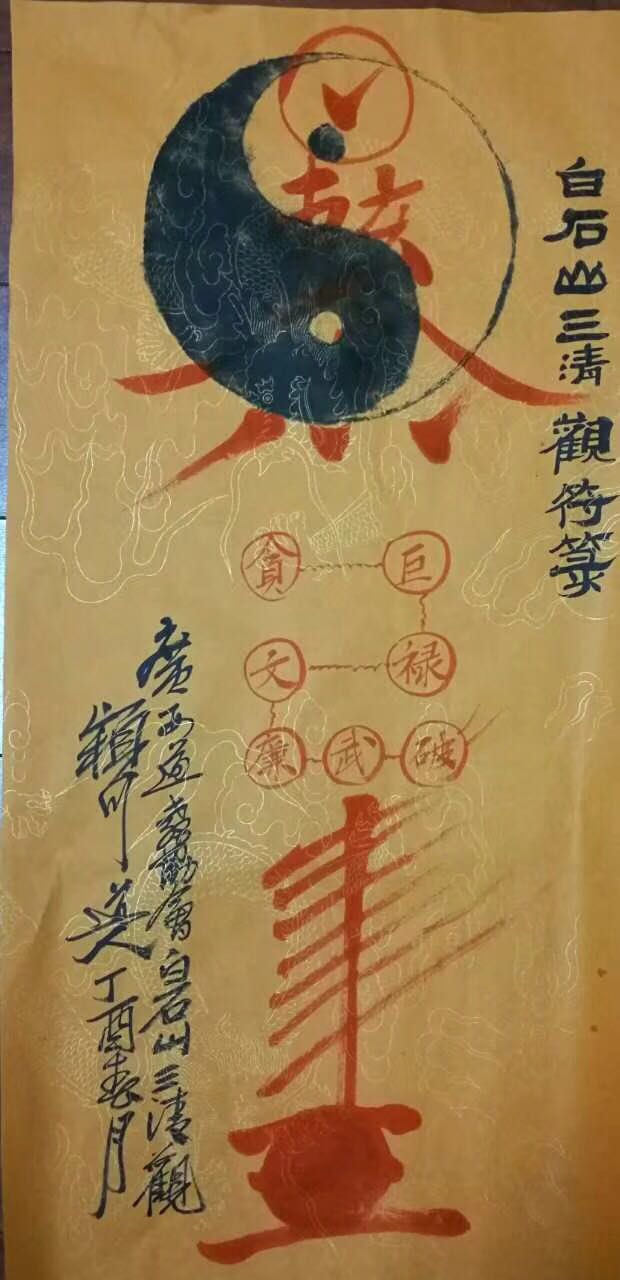 白石山三清觀符箓
貪 巨
文 禄
廉 武 破
廣西道教協會白石山三清觀
丁酉春月